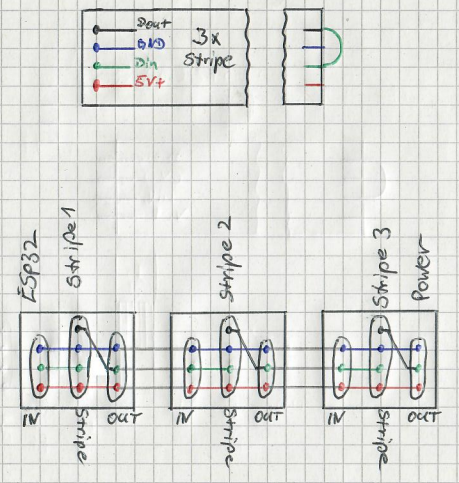 Dout
GND
Din
5V+
3x
Stripe
ESP32
Stripe 1
Stripe 2
Stripe 3
Power
IN
Stripe
OUT
IN
Stripe
OUT
IN
Stripe
OUT